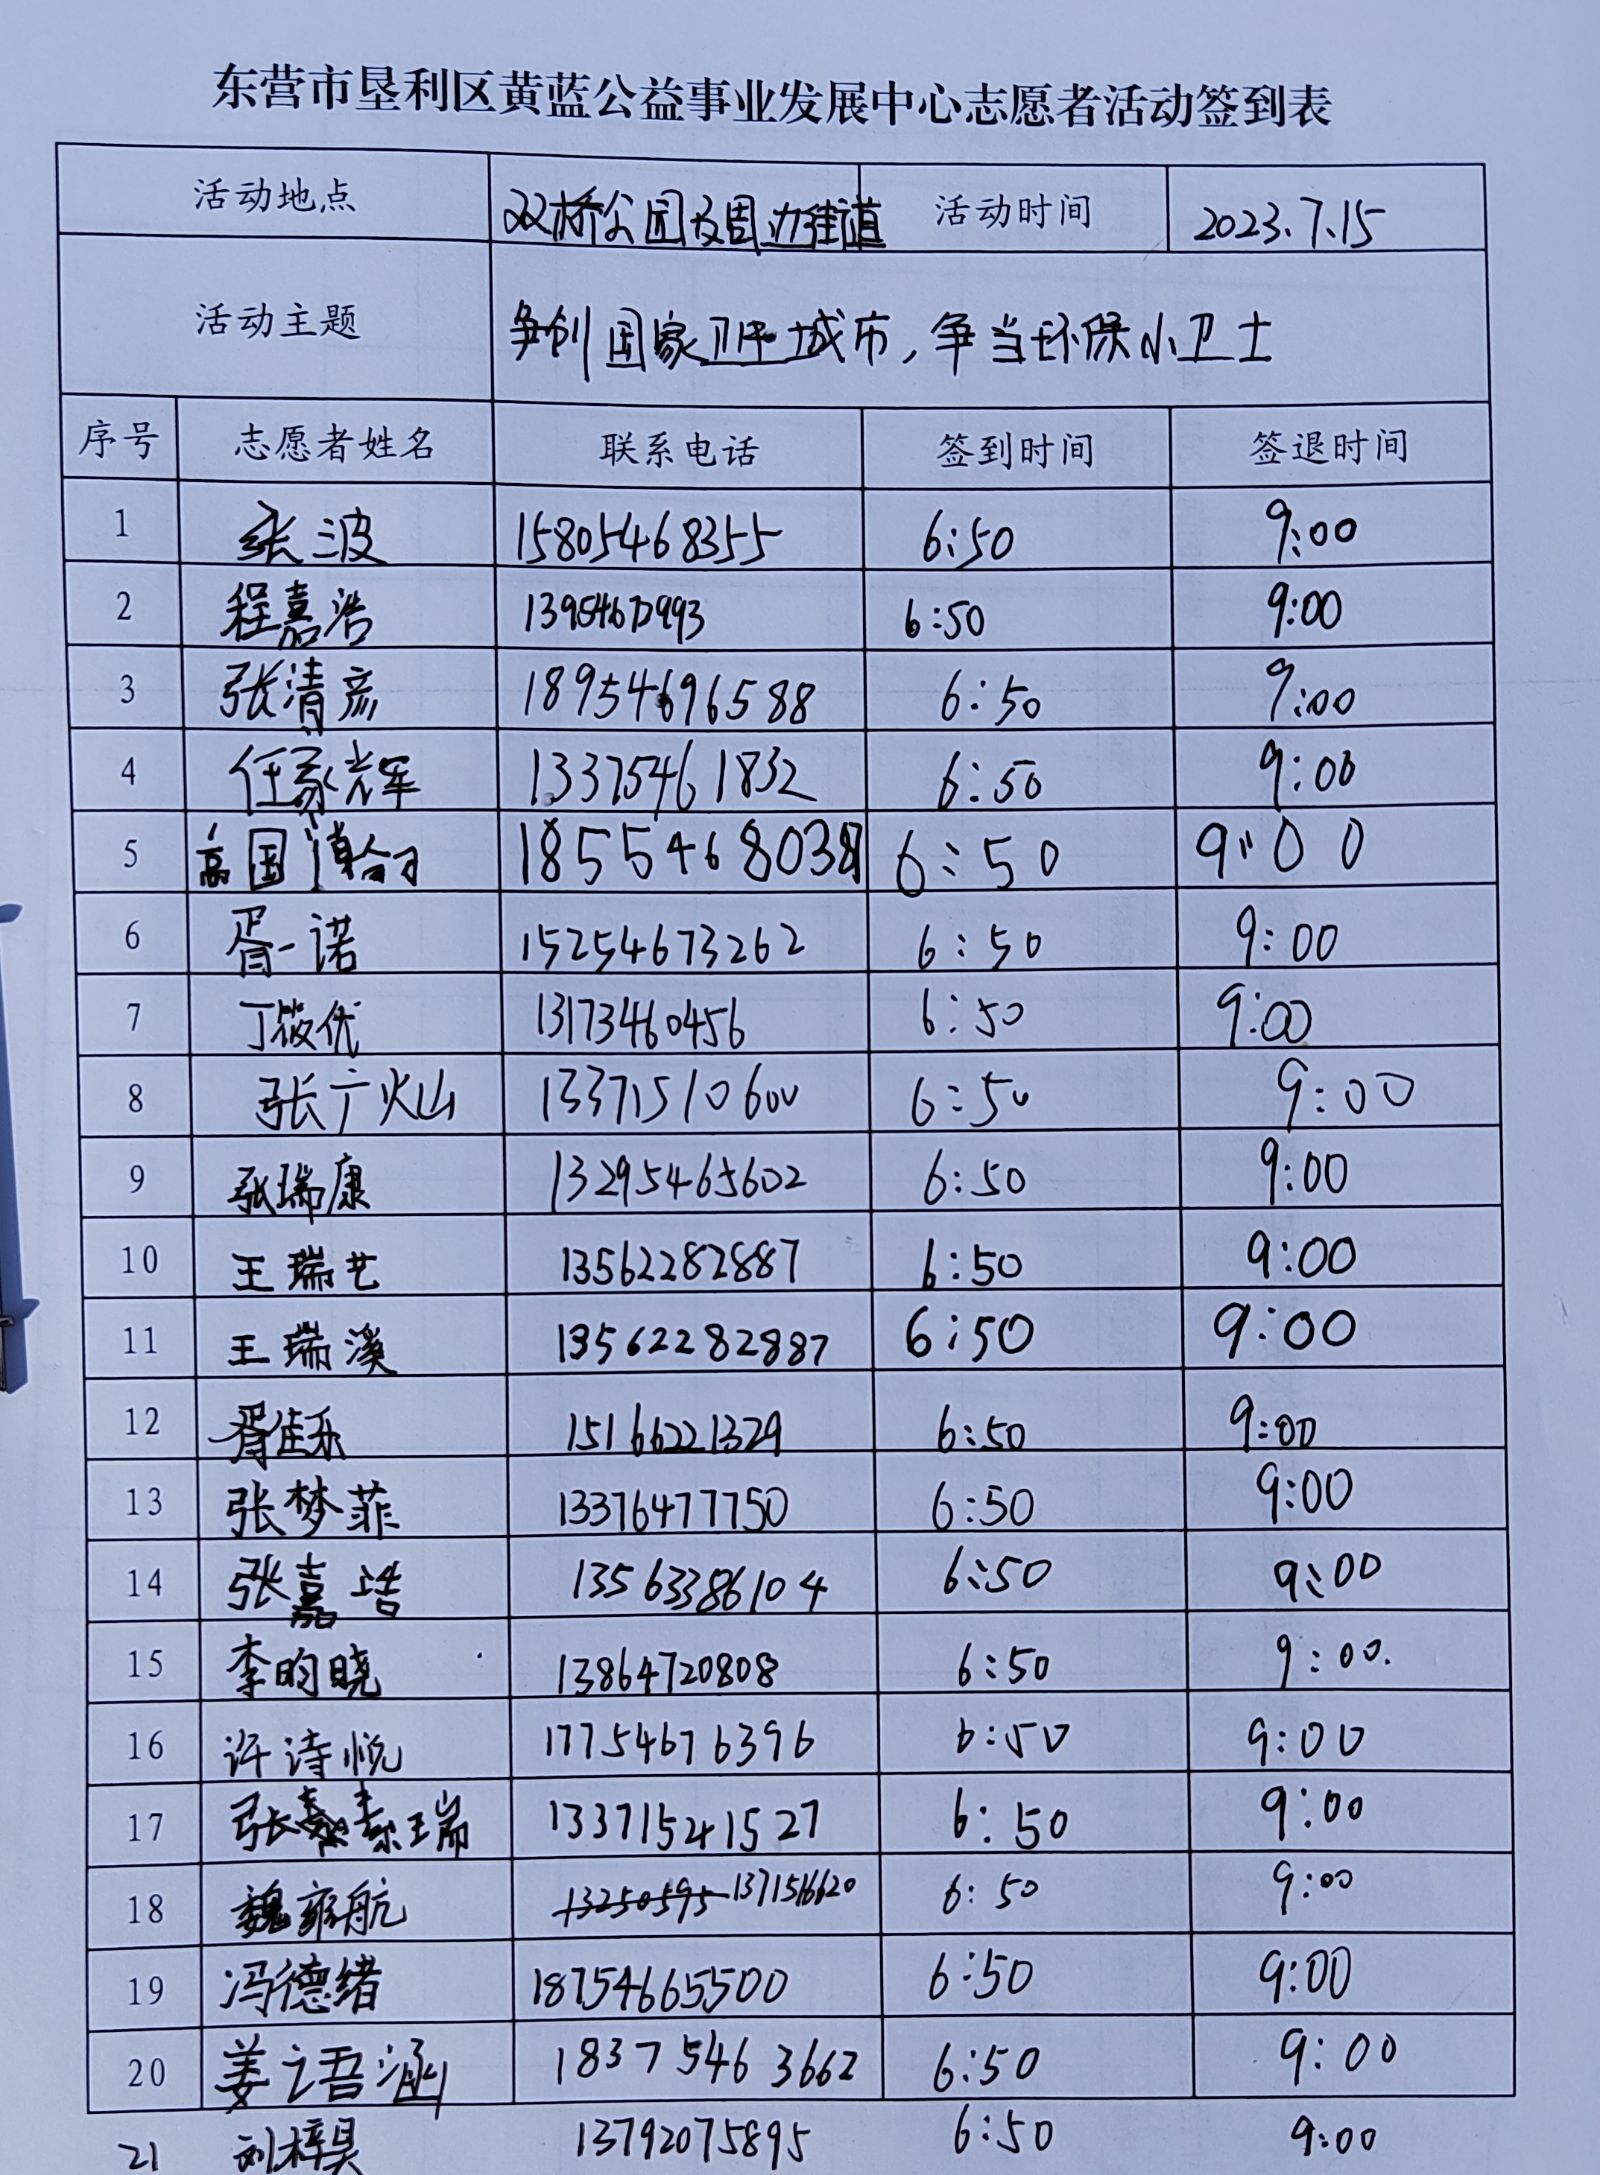 东营市垦利区黄蓝公益事业发展中心志愿者活动签到表
活动地点 双桥公园及周边街道 活动时间 2023.7.15
活动主题 争创国家卫生城市，争当环保小卫士
序号 志愿者姓名 联系电话 签到时间 签退时间
1 张波 15805468355 6:50 9:00
2 程嘉浩 6:50 9:00
3 张清彦 18954696588 6:50 9:00
4 任家辉 13375461832 6:50 9:00
5 高国 6:50 9:00
6 胥一诺 15254673262 6:50 9:00
7 丁筱优 13173460456 6:50 9:00
8 张广灿 13371510600 6:50 9:00
9 张瑞康 13295465602 6:50 9:00
10 王瑞艺 13562282887 6:50 9:00
11 王瑞溪 13562282887 6:50 9:00
12 胥佳乐 15166221329 6:50 9:00
13 张梦菲 13376477750 6:50 9:00
14 张嘉浩 13563386104 6:50 9:00
15 李昀晓 13864720808 6:50 9:00.
16 许诗悦 17754676396 6:50 9:00
17 张素瑞 13371541527 6:50 9:00
18 魏航 13250595 1371516620 6:50 9:00
19 冯德绪 18754665500 6:50 9:00
20 姜语涵 18375463662 6:50 9:00
21 刘梓昊 13792075895 6:50 9:00